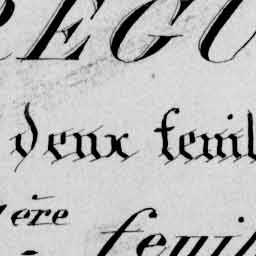 REGU
deux feuil
ère
feuil